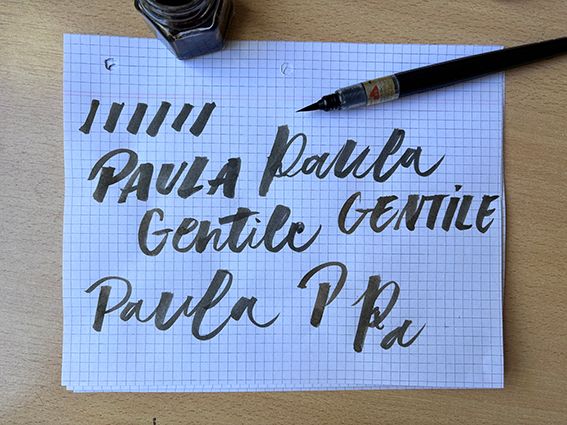 PAULA Paula
Gentile GENTILE
Paula P Pa